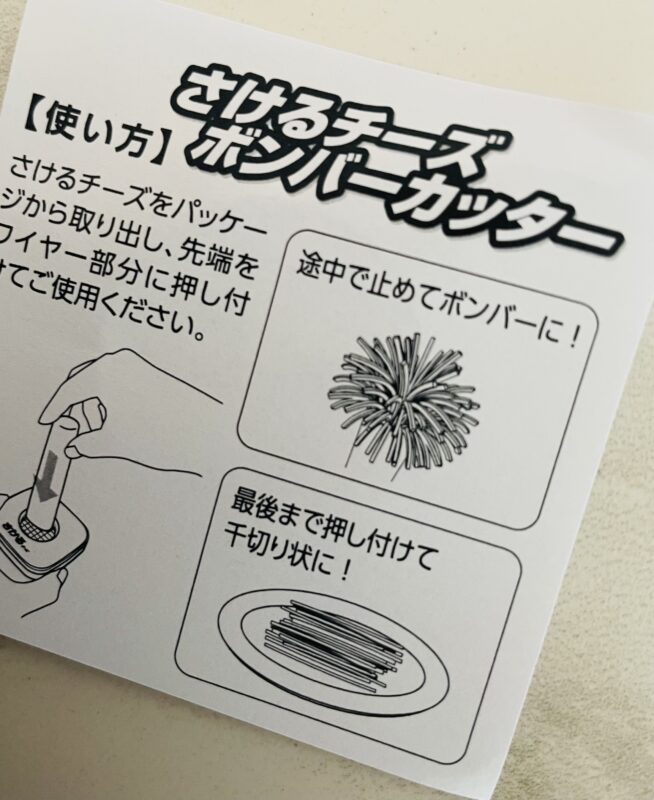 さけるチーズ
ボンバーカッター
【使い方】
さけるチーズをパッケー
ジから取り出し、先端を
ワイヤー部分に押し付
けてご使用ください。
途中で止めてボンバーに！
最後まで押し付けて
千切り状に！